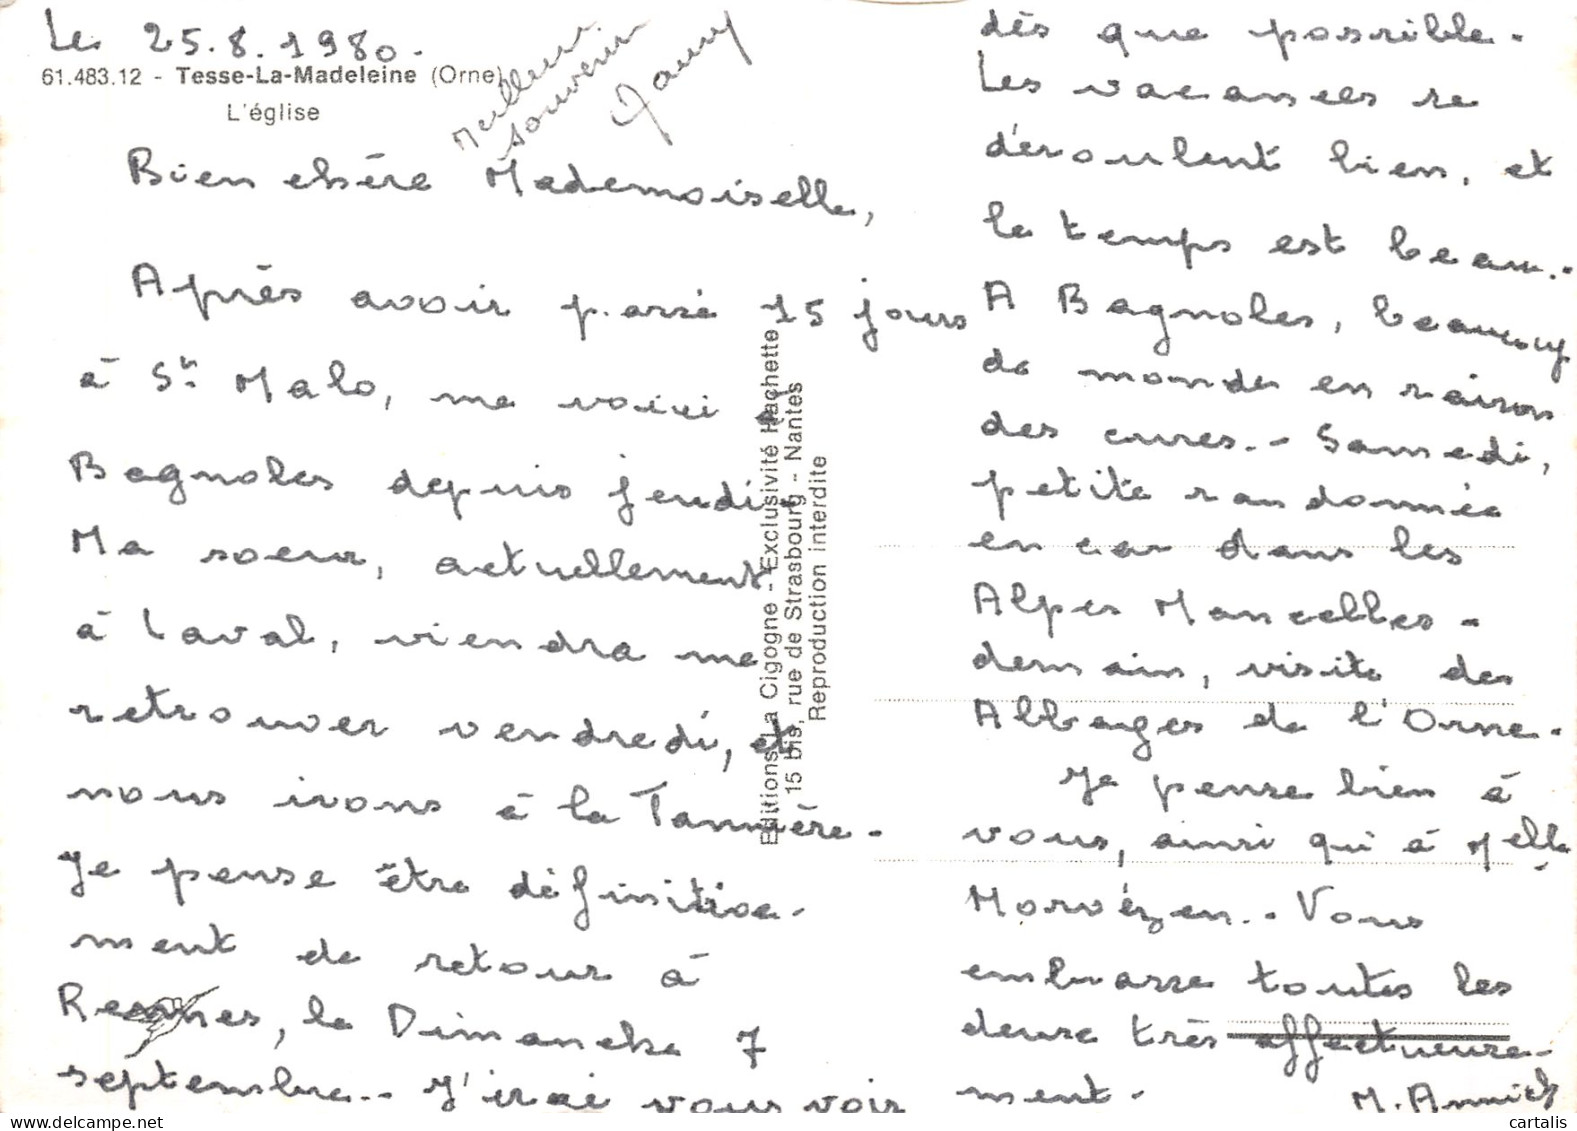 Le 25.8.1980.
61.483.12 - Tesse-La-Madeleine (Orne)
L'église
Meilleur
souvenir
Bien chère Mademoiselle,
Après avoir passé 15 jours
à St Malo, me voici à
Bagnoles depuis jeudi.
Ma soeur, actuellement
à Laval, viendra me
retrouver vendredi, et
nous irons à la Tannière.
Je pense être définitive-
ment de retour à
Rennes, le Dimanche 7
septembre.. J'irai vous voir
dès que possible.
Les vacances se
déroulent bien, et
le temps est beau..
A Bagnoles, beaucoup
de monde en raison
des cures.- Samedi,
petite randonnée
en car dans les
Alpes Mancelles -
demain, visite des
Abbayes de l'Orne.
Je pense bien à
vous, ainsi qu'à Melle
Morvézen.. Vous
embrasse toutes les
deux très affectueuse-
ment.
M. Annick
Editions La Cigogne - Exclusivité Hachette
15 bis, rue de Strasbourg - Nantes
Reproduction interdite
cartalis